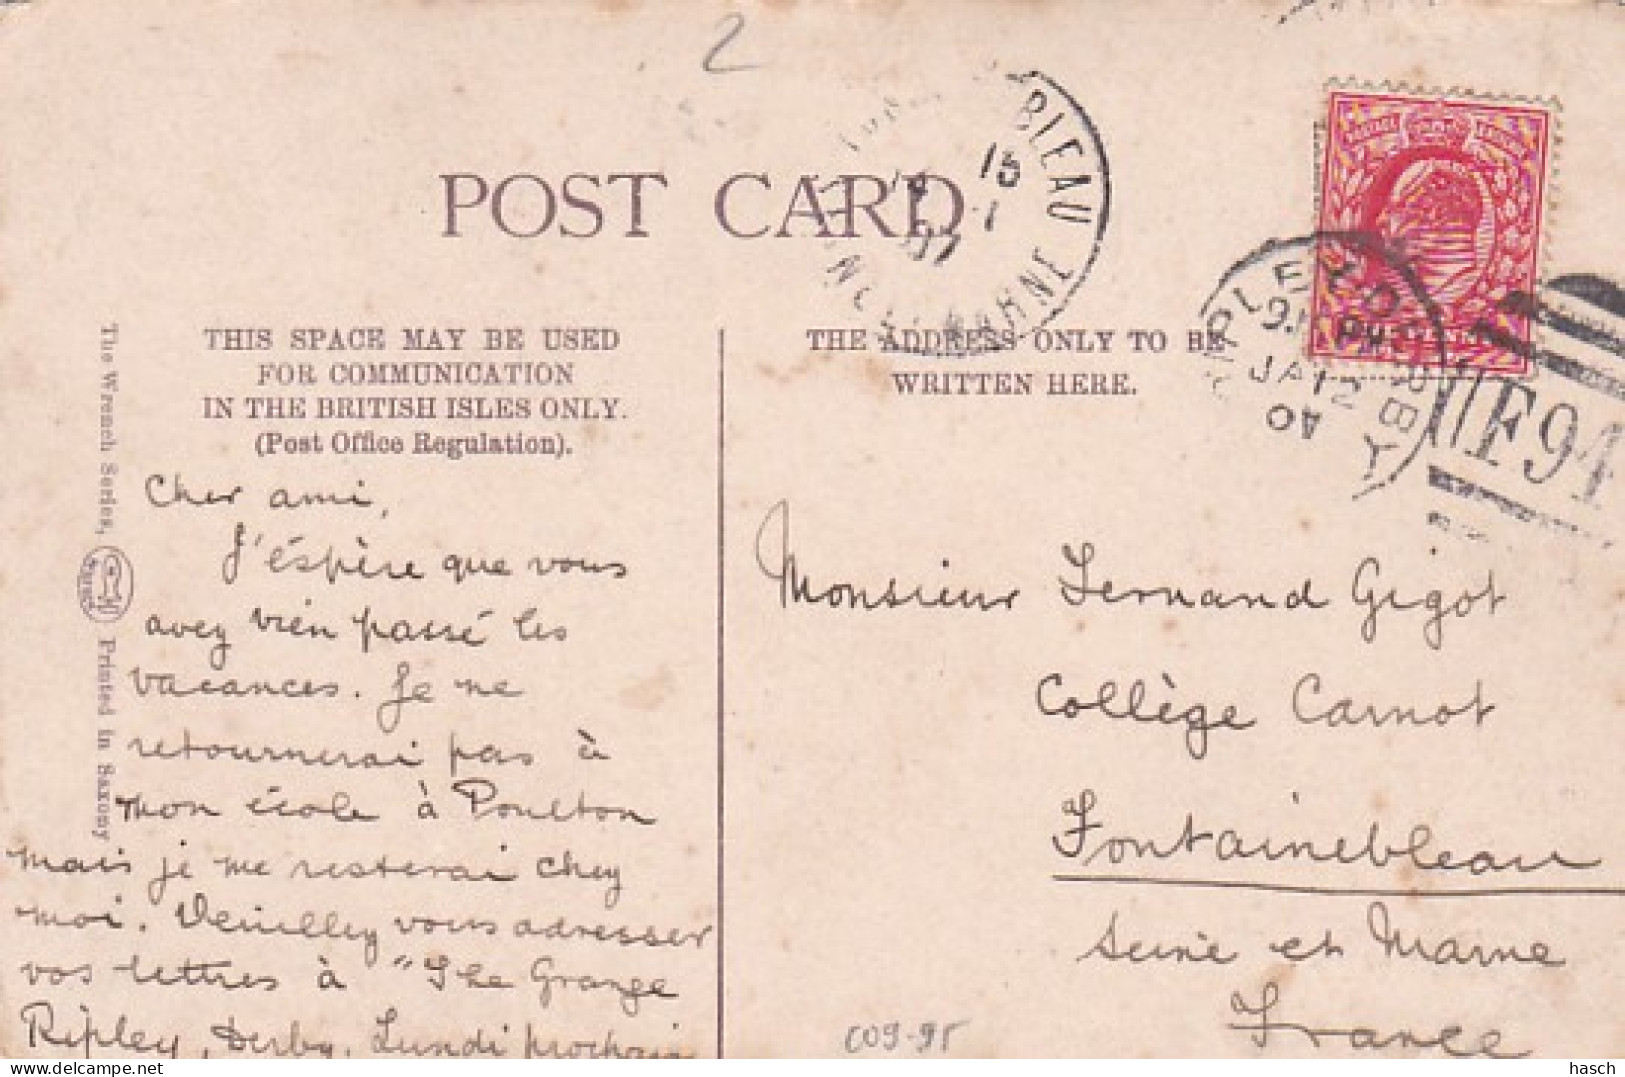 2
POST CARD
BLEAU
15
THIS SPACE MAY BE USED
FOR COMMUNICATION
IN THE BRITISH ISLES ONLY.
(Post Office Regulation).
THE ADDRESS ONLY TO BE
WRITTEN HERE.
RIPLEY
DERBY
JA 12
F94
The Wrench Series,
Printed in Saxony
Cher ami,
J'éspère que vous
avez bien passé les
vacances. Je ne
retournerai pas à
mon école à Poulton
mais je me resterai chez
moi. Veuillez vous adresser
vos lettres à "The Grange
Ripley, Derby. Lundi prochain
Monsieur Fernand Gigot
Collège Carnot
Fontainebleau
Seine et Marne
France
C09-95
hasch